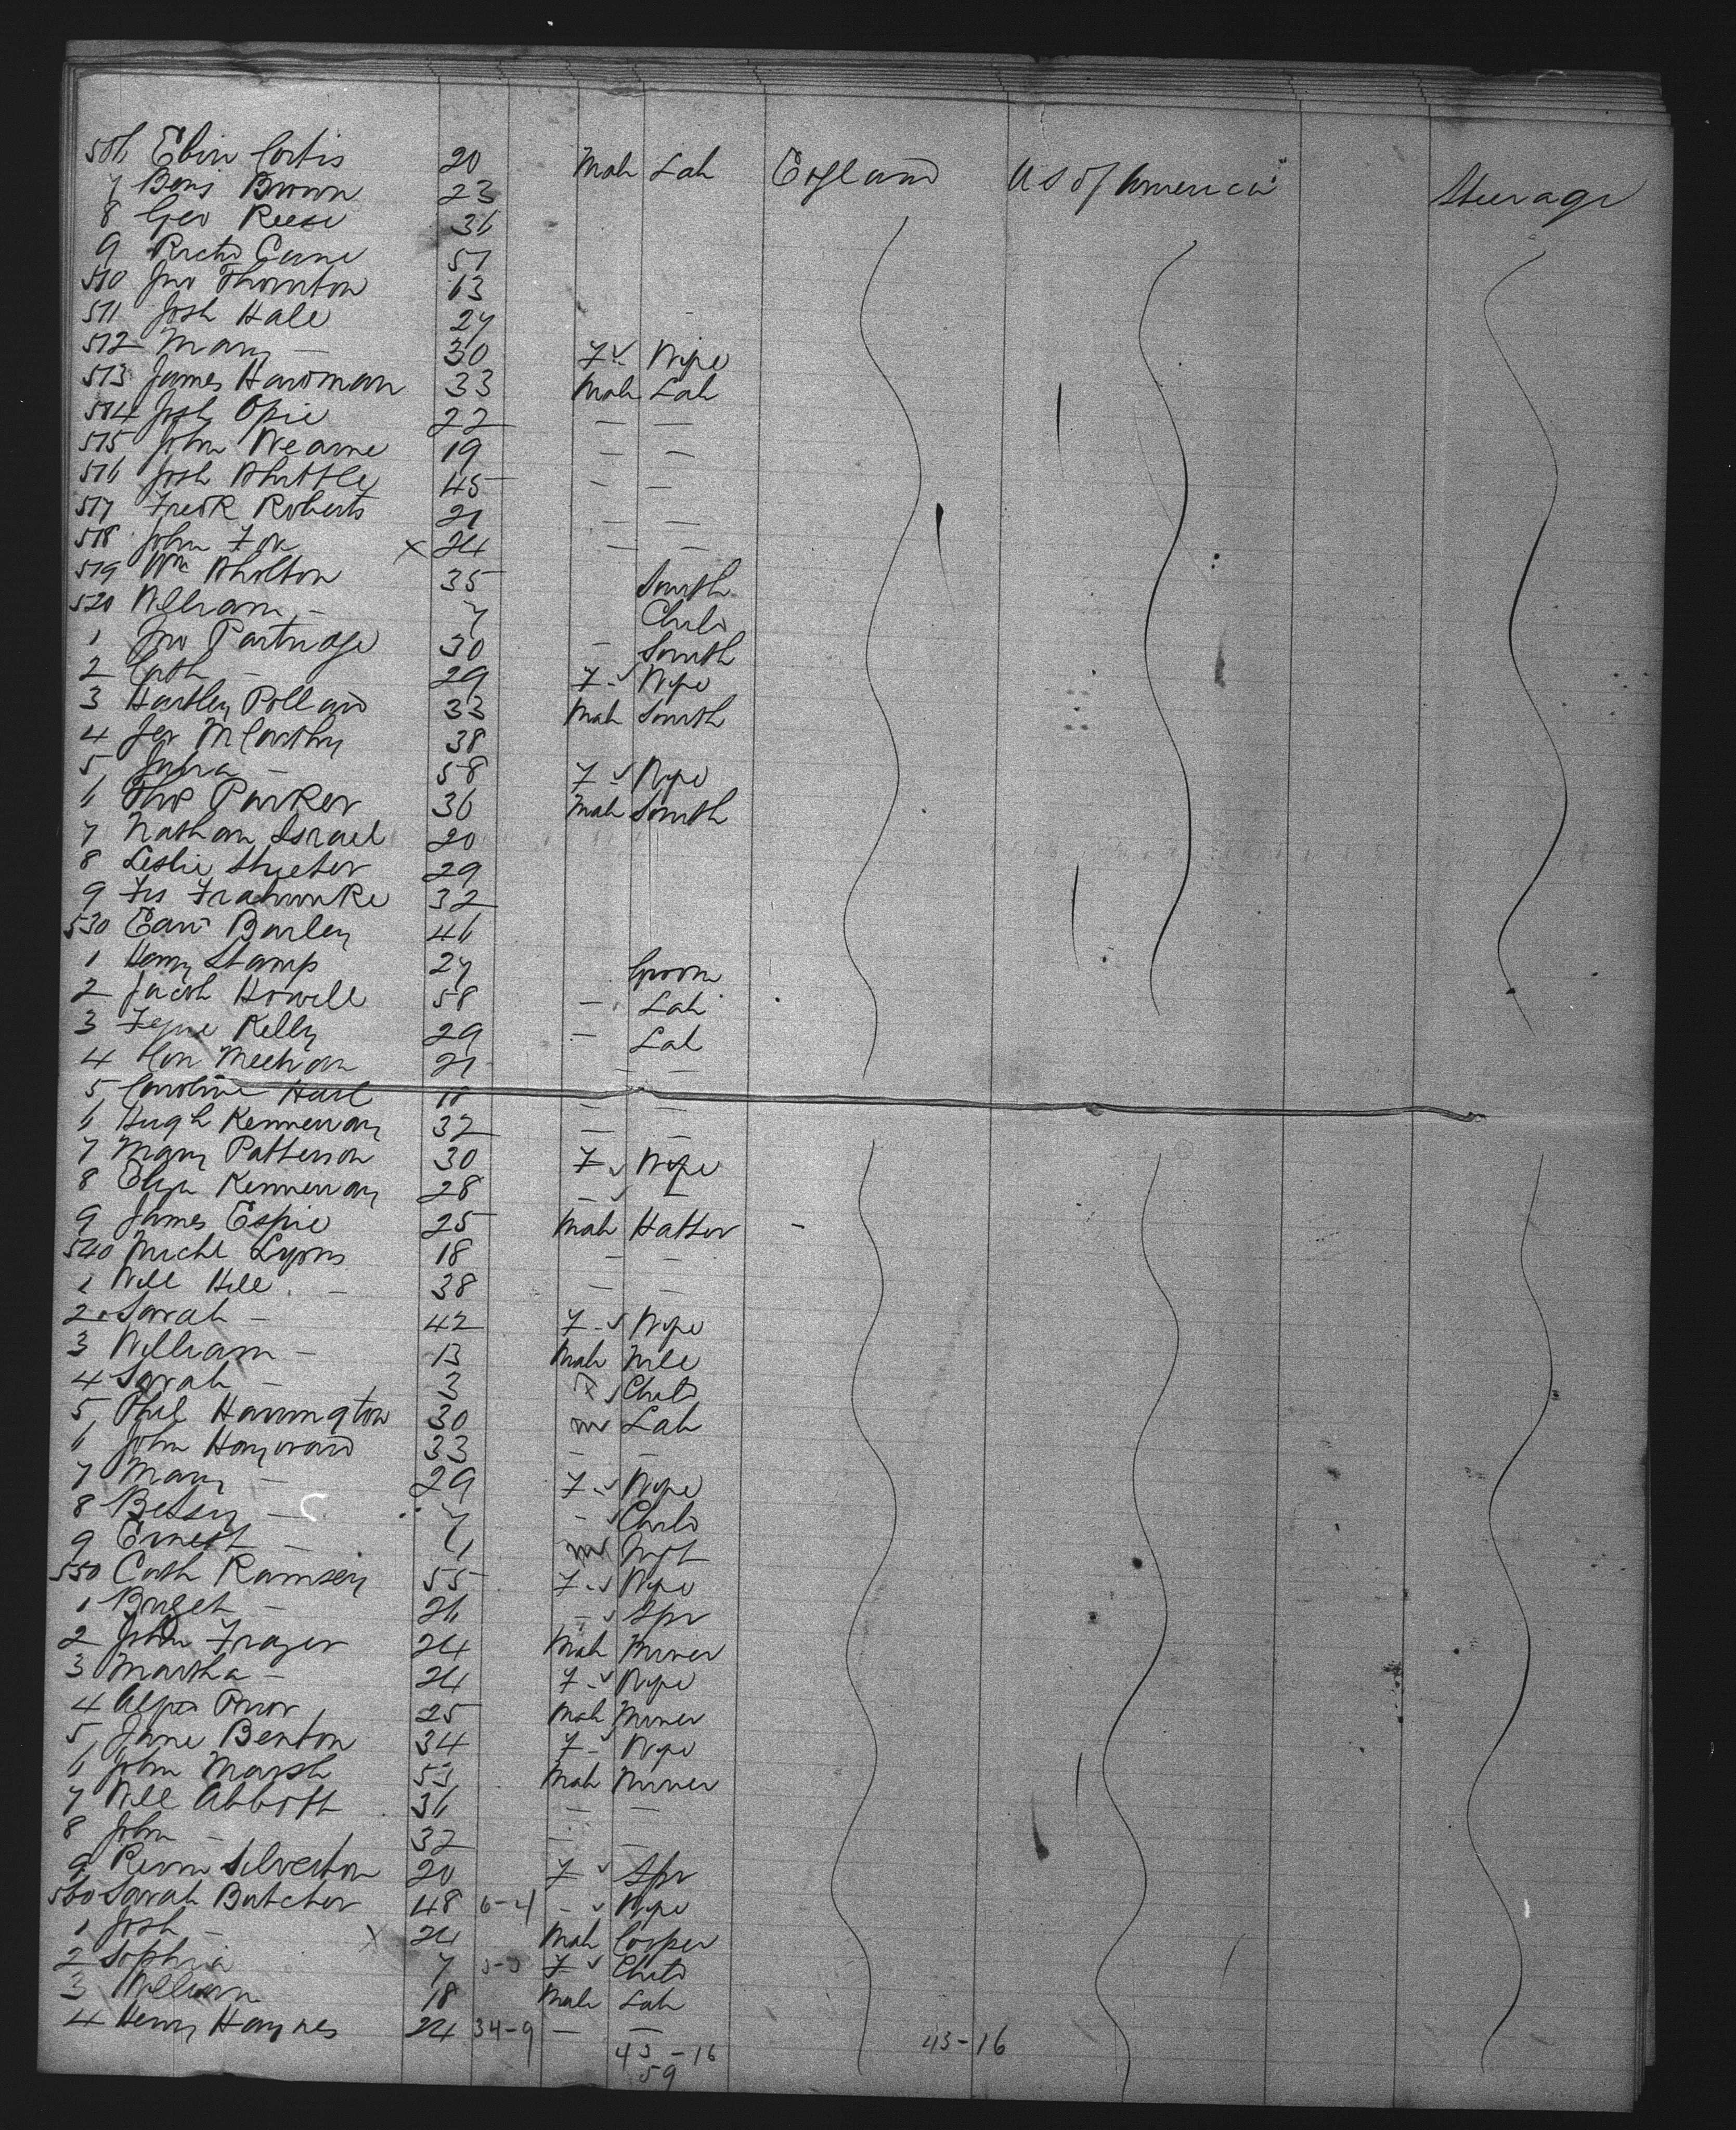 506 Ebin Cortis 20 Male Lab England U S of America Steerage
7 Benj Brown 23
8 Geo Reese 36
9 Richd Cane 57
510 Jno Thornton 63
511 Josh Hale 27
512 Mary — 30 F Wife
513 James Hardman 33 Male Lab
514 Josh Opie 22 — —
515 John Wearne 19 — —
516 Josh Whittle 45 — —
517 Fredk Roberts 21 — —
518 John Fox × 24 — —
519 Wm Wholton 35 Smith
520 William — 7 Child
1 Jno Partridge 30 — Smith
2 Cath — 29 F Wife
3 Hartley Pollard 33 Male Smith
4 Jer McCarthy 38
5 Julia — 58 F Wife
6 Thos Parker 36 Male Smith
7 Nathan Israel 20
8 Leslie 29
9 Frs 32
530 Edwd Barley 46
1 Henry Stamp 27 Groom
2 Jacob Howell 58 — Lab
3 Kelly 29 — Lab
4 Con Meehan 21 — —
5 Caroline Hart 18 — —
6 Hugh Kennerray 32 — —
7 Mary Patterson 30 F Wife
8 Eliza Kennerray 28 — —
9 James Espie 25 Male Hatter
540 Michl Lyons 18 — —
1 Will Hill 38 — —
2 Sarah — 42 F Wife
3 William — 13 Male
4 Sarah — 3 F Child
5 Phil Harrington 30 m Lab
6 John Hayward 33 — —
7 Mary — 29 F Wife
8 Betsy — 7 — Child
9 Ernest — m Inft
550 Cath Ramsey 55 F Wife
1 Bridget — 26 — Spr
2 John Frazer 24 Male Miner
3 Martha — 24 F Wife
4 Prior 25 Male Miner
5 Jane Benton 34 F Wife
6 John Marsh 53 Male Miner
7 Will Abbott 36 — —
8 John — 32 — —
9 Silverton 20 F Spr
560 Sarah Butcher 48 6-4 — Wife
1 Josh — × 24 Male Cooper
2 Sophia 7 F Child
3 William 18 Male Lab
4 Henry Haynes 24 34-9 — —
43-16 43-16
59